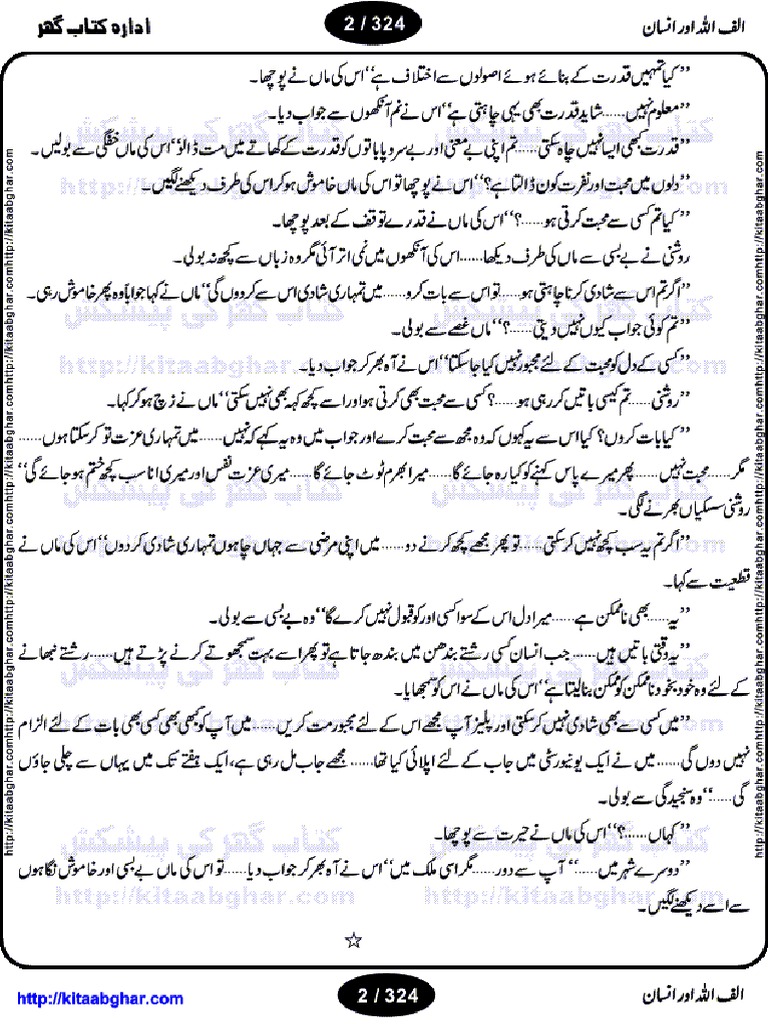 الف اللہ اور انسان
2 / 324
ادارہ کتاب گھر
’’کیا تمہیں قدرت کے بنائے ہوئے اصولوں سے اختلاف ہے‘‘ اس کی ماں نے پوچھا۔
’’معلوم نہیں......شاید قدرت بھی یہی چاہتی ہے‘‘ اس نے نم آنکھوں سے جواب دیا۔
’’قدرت کبھی ایسا نہیں چاہ سکتی......تم اپنی بے معنی اور بے سروپا باتوں کو قدرت کے کھاتے میں مت ڈالو‘‘ اس کی ماں خفگی سے بولیں۔
’’دلوں میں محبت اور نفرت کون ڈالتا ہے؟‘‘ اس نے پوچھا تو اس کی ماں خاموش ہو کر اس کی طرف دیکھنے لگیں۔
’’کیا تم کسی سے محبت کرتی ہو......؟‘‘ اس کی ماں نے قدرے توقف کے بعد پوچھا۔
روشنی نے بے بسی سے ماں کی طرف دیکھا......اس کی آنکھوں میں نمی اتر آئی مگر وہ زباں سے کچھ نہ بولی۔
’’اگر تم اس سے شادی کرنا چاہتی ہو......تو اس سے بات کرو......میں تمہاری شادی اس سے کر دوں گی‘‘ ماں نے کہا جواباً وہ پھر خاموش رہی۔
’’تم کوئی جواب کیوں نہیں دیتی......؟‘‘ ماں غصے سے بولی۔
’’کسی کے دل کو محبت کے لئے مجبور نہیں کیا جا سکتا‘‘ اس نے آہ بھر کر جواب دیا۔
’’روشنی......تم کیسی باتیں کر رہی ہو......؟ کسی سے محبت بھی کرتی ہو اور اسے کچھ کہہ بھی نہیں سکتی‘‘ ماں نے زچ ہو کر کہا۔
’’کیا بات کروں؟ کیا اس سے یہ کہوں کہ وہ مجھ سے محبت کرے اور جواب میں وہ یہ کہے کہ نہیں......میں تمہاری عزت تو کر سکتا ہوں......
مگر......محبت نہیں......پھر میرے پاس کہنے کو کیا رہ جائے گا......میرا بھرم ٹوٹ جائے گا......میری عزت نفس اور میری انا سب کچھ ختم ہو جائے گی‘‘
روشنی سسکیاں بھرنے لگی۔
’’اگر تم یہ سب کچھ نہیں کر سکتی......تو پھر مجھے کچھ کرنے دو......میں اپنی مرضی سے جہاں چاہوں تمہاری شادی کر دوں‘‘ اس کی ماں نے
قطعیت سے کہا۔
’’یہ......بھی ناممکن ہے......میرا دل اس کے سوا کسی اور کو قبول نہیں کرے گا‘‘ وہ بے بسی سے بولی۔
’’یہ وقتی باتیں ہیں......جب انسان کسی رشتے بندھن میں بندھ جاتا ہے تو پھر اسے بہت سمجھوتے کرنے پڑتے ہیں......رشتے نبھانے
کے لئے وہ خود بخود ناممکن کو ممکن بنا لیتا ہے‘‘ اس کی ماں نے اس کو سمجھایا۔
’’میں کسی سے بھی شادی نہیں کر سکتی اور پلیز آپ مجھے اس کے لئے مجبور مت کریں......میں آپ کو کبھی بھی کسی بھی بات کے لئے الزام
نہیں دوں گی......میں نے ایک یونیورسٹی میں جاب کے لئے اپلائی کیا تھا......مجھے جاب مل رہی ہے، ایک ہفتے تک میں یہاں سے چلی جاؤں
گی......‘‘ وہ سنجیدگی سے بولی۔
’’کہاں......؟‘‘ اس کی ماں نے حیرت سے پوچھا۔
’’دوسرے شہر میں......‘‘ آپ سے دور......مگر اسی ملک میں‘‘ اس نے آہ بھر کر جواب دیا......تو اس کی ماں بے بسی اور خاموش نگاہوں
سے اسے دیکھنے لگیں۔
☆
http://kitaabghar.com
2 / 324
الف اللہ اور انسان
کتاب گھر کی پیشکش
http://kitaabghar.com